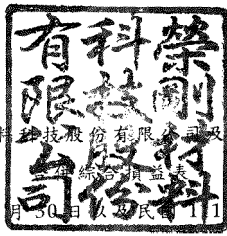 榮剛材料
科技股份
有限公司
科技股份有限公司及
綜合損益表
月 30 日以及民國 11